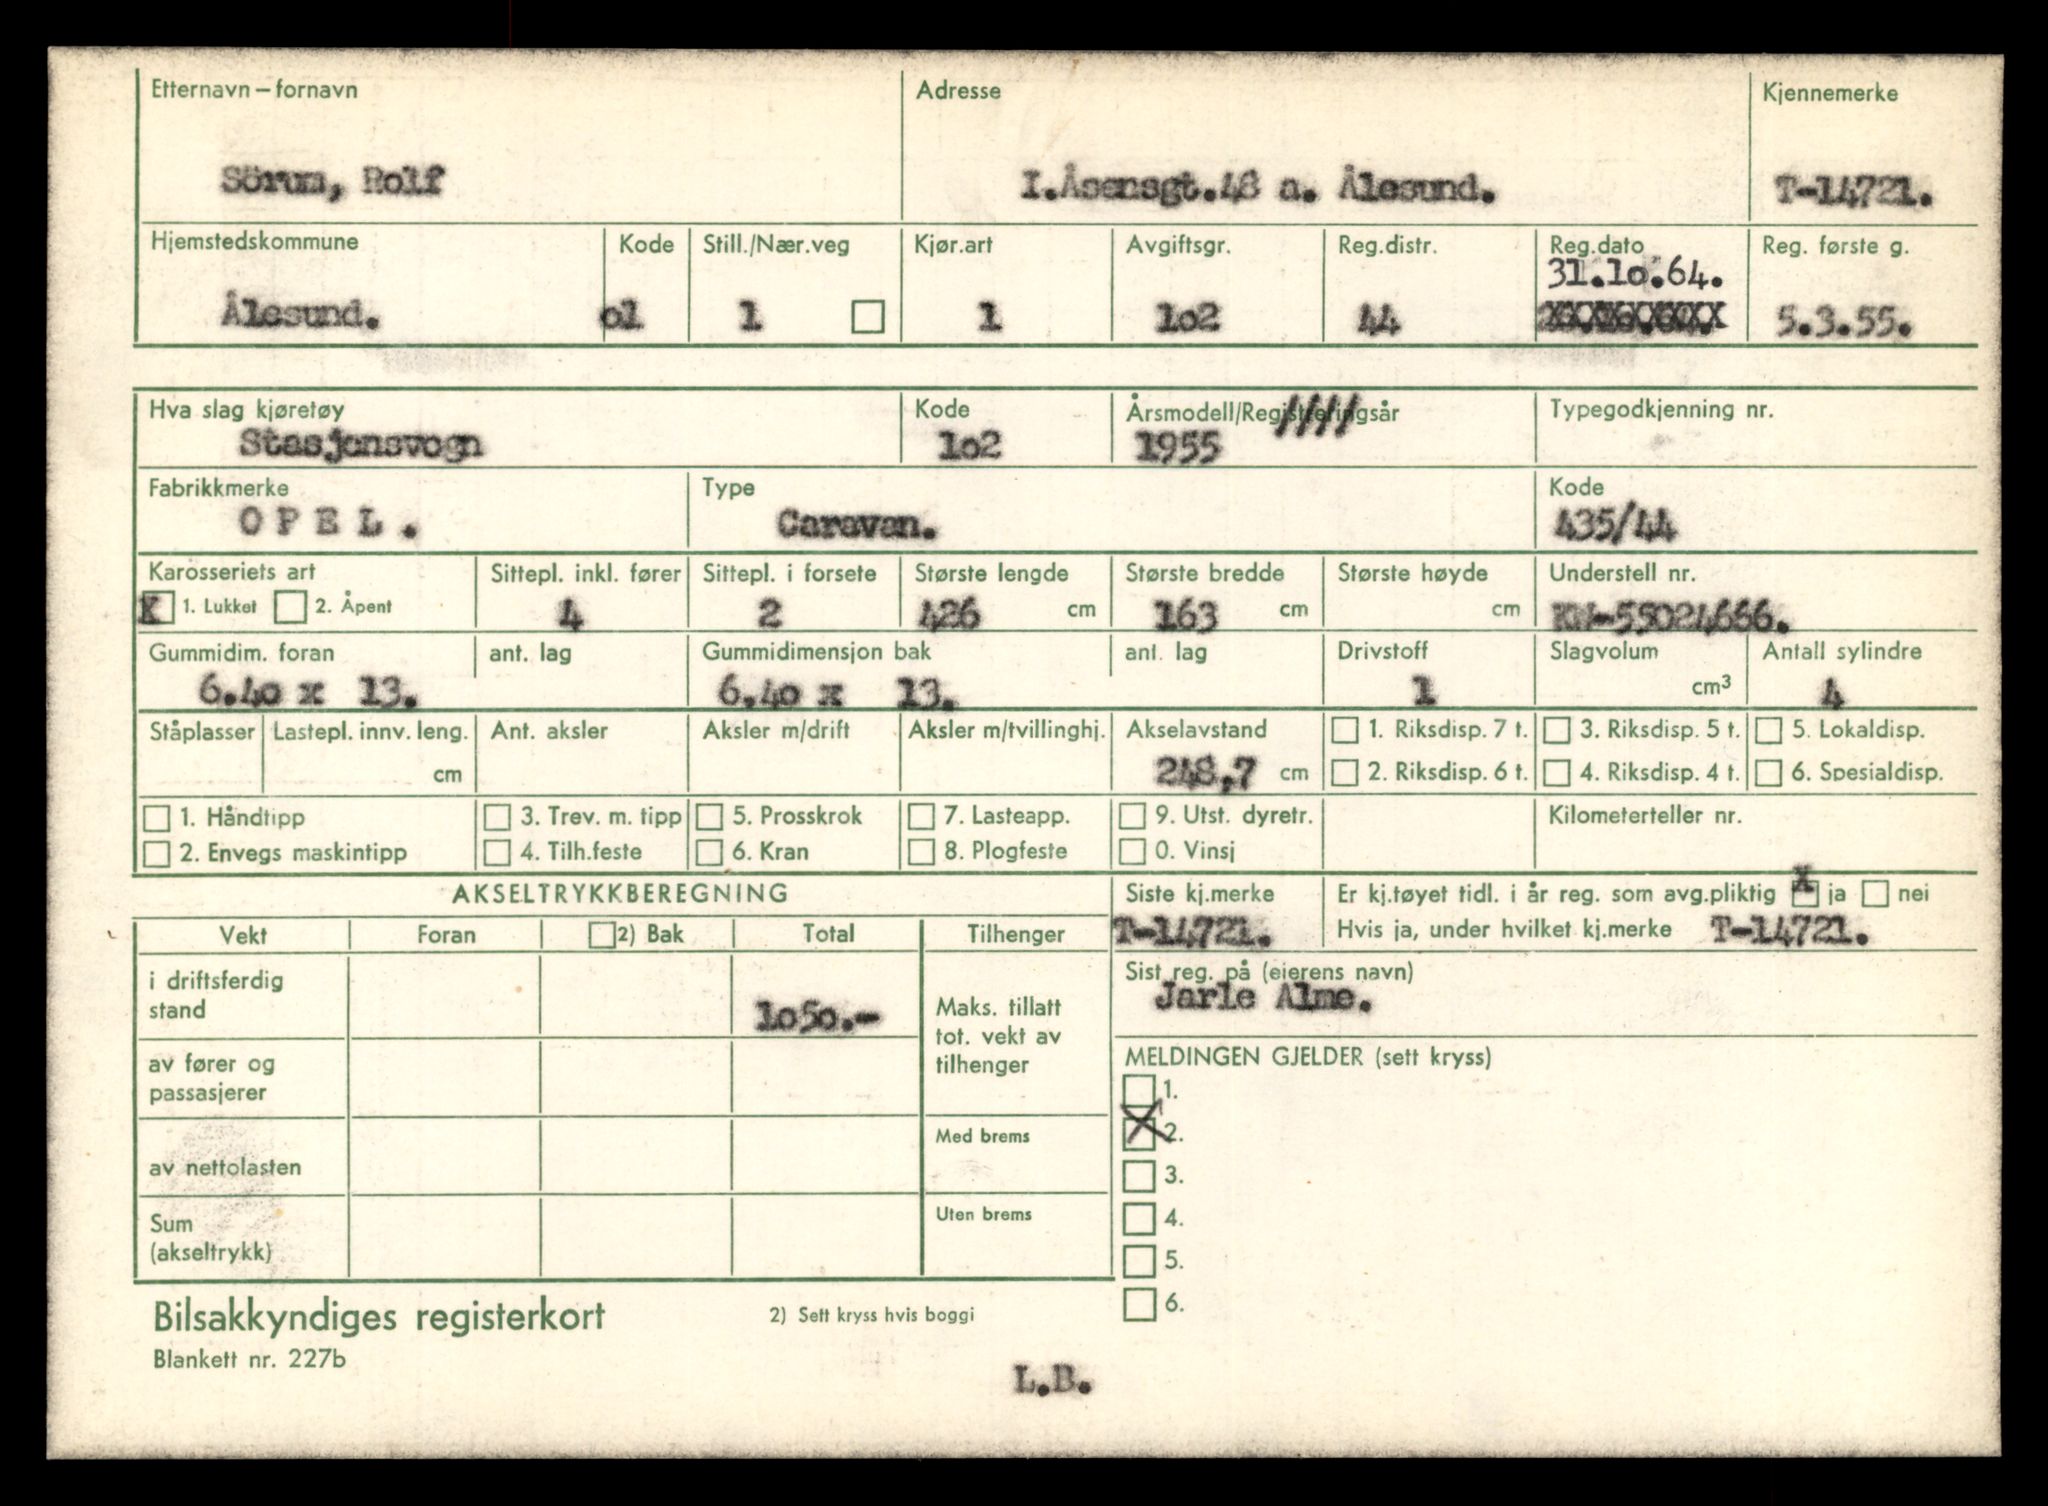 Etternavn – fornavn Adresse Kjennemerke
Sörum, Rolf I.Åsensgt.48 a. Ålesund. T-14721.
Hjemstedskommune Kode Still./Nær.veg Kjør.art Avgiftsgr. Reg.distr. Reg.dato Reg. første g.
31.lo.64.
Ålesund. ol 1 1 lo2 44 5.3.55.
Hva slag kjøretøy Kode Årsmodell/Registreringsår Typegodkjenning nr.
Stasjonsvogn lo2 1955
Fabrikkmerke Type Kode
OPEL. Caravan. 435/44
Karosseriets art Sittepl. inkl. fører Sittepl. i forsete Største lengde Største bredde Største høyde Understell nr.
X 1. Lukket 2. Åpent 4 2 426 cm 163 cm cm -55024666.
Gummidim. foran ant. lag Gummidimensjon bak ant. lag Drivstoff Slagvolum Antall sylindre
6.4o x 13. 6.4o x 13. 1 cm³ 4
Ståplasser Lastepl. innv. leng. Ant. aksler Aksler m/drift Aksler m/tvillinghj. Akselavstand 1. Riksdisp. 7 t. 3. Riksdisp. 5 t. 5. Lokaldisp.
cm 248,7 cm 2. Riksdisp. 6 t. 4. Riksdisp. 4 t. 6. Spesialdisp.
1. Håndtipp 3. Trev. m. tipp 5. Prosskrok 7. Lasteapp. 9. Utst. dyretr. Kilometerteller nr.
2. Envegs maskintipp 4. Tilh.feste 6. Kran 8. Plogfeste 0. Vinsj
AKSELTRYKKBEREGNING Siste kj.merke Er kj.tøyet tidl. i år reg. som avg.pliktig X ja nei
Vekt Foran 2) Bak Total Tilhenger T-14721. Hvis ja, under hvilket kj.merke T-14721.
Sist reg. på (eierens navn)
Jarle Alme.
i driftsferdig
stand lo5o.-
Maks. tillatt
tot. vekt av
tilhenger
av fører og
passasjerer
MELDINGEN GJELDER (sett kryss)
1.
X 2.
Med brems
av nettolasten
3.
Uten brems
4.
Sum
(akseltrykk)
5.
6.
Bilsakkyndiges registerkort 2) Sett kryss hvis boggi
Blankett nr. 227b
L.B.